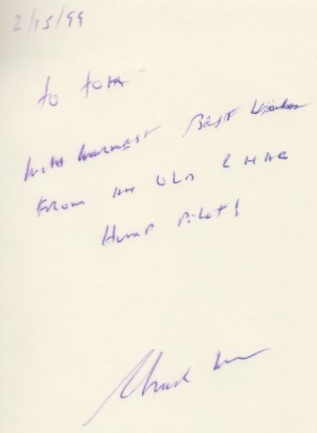 2/15/99
to Tom -
With warmest Best Wishes
From an old CNAC
Hump Pilot!